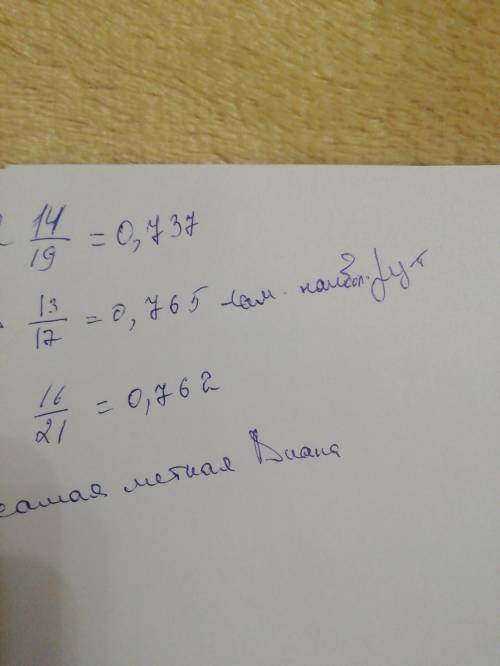 14/19 = 0,737
13/17 = 0,765 сам. наибол.
16/21 = 0,762
самая меткая Диана